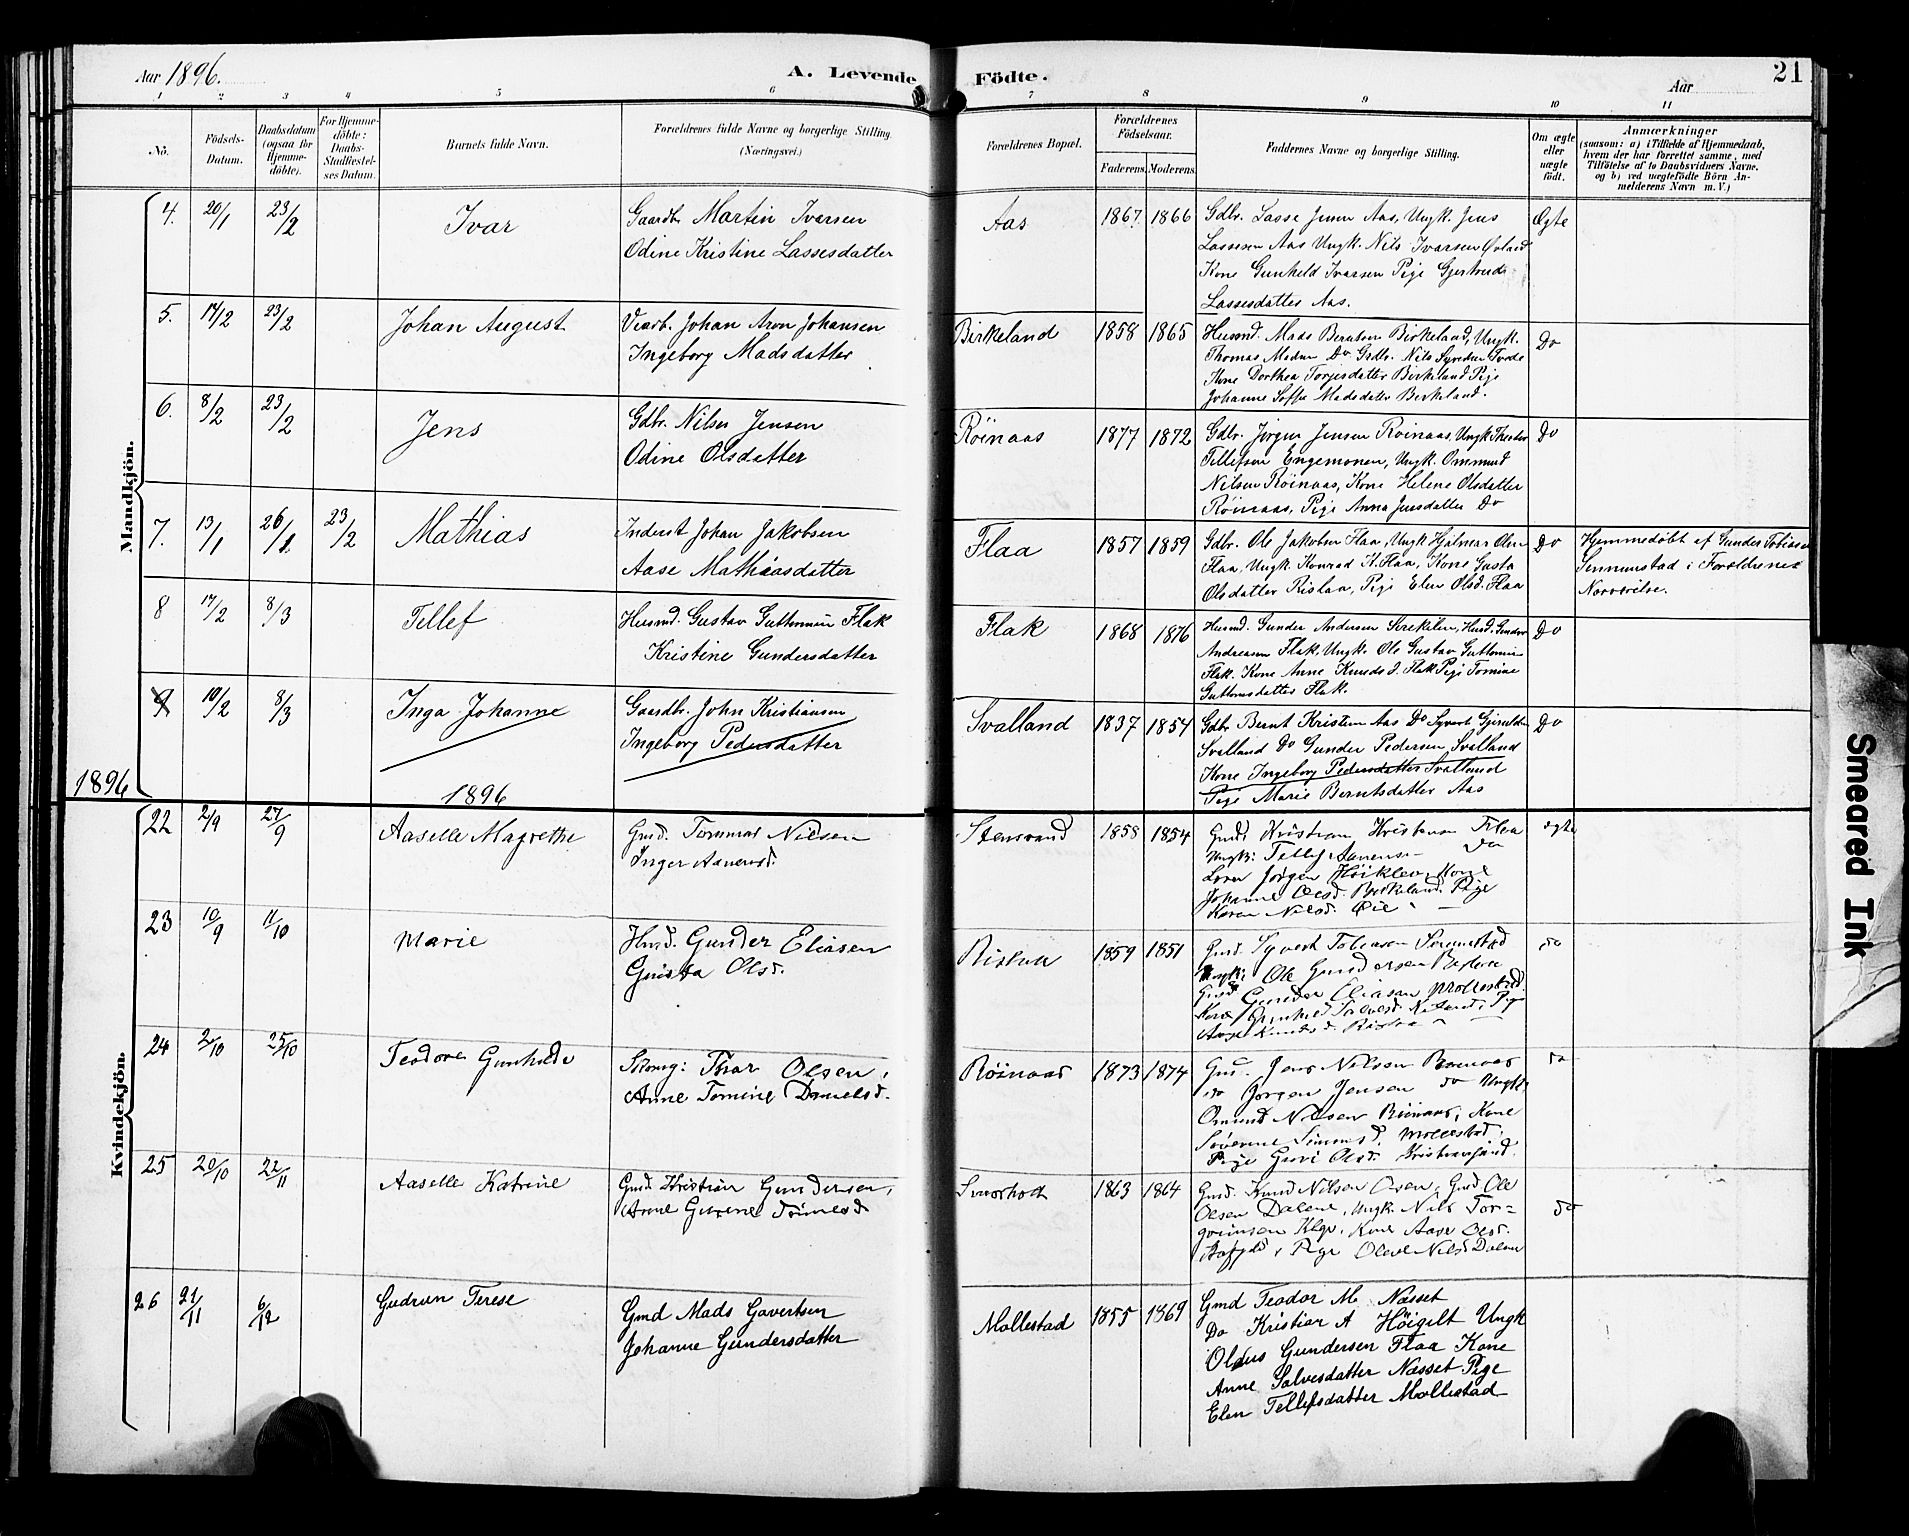 Aar 1896.
A. Levende Födte.
Aar
21
1 2 3 4 5 6 7 8 9 10 11
No.
Födsels-Datum.
Daabsdatum (ogsaa for Hjemme-döbte).
For Hjemme-döbte: Daabs-Stadfæstel-ses Datum.
Barnets fulde Navn.
Forældrenes fulde Navne og borgerlige Stilling.
(Næringsvei.)
Forældrenes Bopæl.
Forældrenes Födselsaar.
Faderens. Moderens.
Faddernes Navne og borgerlige Stilling.
Om ægte eller uægte födt.
Anmærkninger
(saasom: a) i Tilfælde af Hjemmedaab,
hvem der har forrettet samme, med
Tilföielse af to Daabsvidners Navne,
og b) ved uægtefödte Börn An-
melderens Navn m. V.)
Mandkjön.
4. 20/1 23/2 Ivar
Gaardbr. Martin Ivarsen
Odine Kristine Lassesdatter
Aas 1867 1866
Gdbr. Lasse Jensen Aas, Ungk. Jens
Lassesen Aas Ungk. Nils Ivarsen
Kone Gunhild Ivarsen Pige Gjertrud
Lassesdatter Aas.
Ægte
5. 14/2 23/2 Johan August
Johan Aron Johansen
Ingeborg Madsdatter
Birkeland 1858 1865
Husmd. Mads Berntsen Birkeland, Ungk.
Thomas Madsen Do Gdbr. Nils
Kone Dorthea Torjesdatter Birkeland Pige
Johanne Sofie Madsdatter Birkeland.
Do
6. 8/2 23/2 Jens
Gdbr. Nils Jensen
Odine Olsdatter
Röinaas 1877 1872
Gdbr. Jörgen Jensen Röinaas, Ungk Theodor
Tellefsen Engemonen, Ungk. Ommund
Nilsen Röinaas, Kone Helene Olsdatter
Röinaas, Pige Anna Jensdatter Do
Do
7. 13/1 26/1 23/2 Mathias
Inderst Johan Jakobsen
Aase Mathiasdatter
Flaa 1857 1859
Gdbr. Ole Jakobsen Flaa, Ungk Hjalmar Olsen
Flaa, Ungk. Konrad K. Flaa, Kone Gusta
Olsdatter Rislaa, Pige Elen Olsd. Flaa
Do
Hjemmedöbt af Gunder Tobiasen
i Forældrenes
Nærværelse.
8 14/2 8/3 Tellef
Husmd. Gustav Guttormsen Flak
Kristine Gundersdatter
Flak 1868 1876
Husmd. Gunder Andersen Husd. Gunder
Andreasen Flak, Ungk. Ole Gustav Guttormsen
Flak. Kone Anne Knudsd. Flak Pige Tomine
Guttormsdatter Flak.
Do
9 10/2 8/3 Inga Johanne
Gaardbr. John Kristiansen
Ingeborg Pedersdatter
Svalland 1837 1854
Gdbr Bernt Kristensen Aas Do Syvert
Svalland Do Gunder Pedersen, Svalland
Kone Ingeborg Pedersdatter Svalland
Pige Marie Berntsdatter Aas
Do
1896
1896
Kvindekjön.
22 2/9 27/9 Aaselle Magrethe
Gmd. Tommas Nilsen
Inger Aanensd.
Stensvand 1858 1854
Gmd. Kristian Kristensen Flaa
Ungk: Tellef Aanensen Do
Jörgen Höiklev, Kone
Johanne Olsd. Birkeland. Pige
Karen Nilsd.
ægte
23 10/9 11/10 Marie
Hmd. Gunder Eliasen
Gusta Olsd.
Rislaa 1859 1851
Gmd. Syvert Tobiasen
Ungk: Ole Gundersen
Gmd Gunder Eliasen Mollestad.
Kone Pige
do
24 2/10 25/10 Teodore Gunhilde
Thor Olsen,
Anne Tomine Danielsd.
Röinaas 1873 1874
Gmd. Jens Nilsen Röinaas
do Jörgen Jensen do Ungk.
Omund Nilsen Röinaas, Kone
Severine Mollestad.
Pige Guri Olsd. Kristiansand.
do
25 20/10 22/11 Aaselle Katrine
Gmd. Kristian Gundersen,
Anne Gurine
1863 1864
Gmd. Knud Nilsen Gmd Ole
Olsen Dalene, Ungk. Nils Tor-
grimsen Kone Aase Olsd.
Pige Olene Nilsd. Dalene
do
26 21/11 6/12 Gudrun Terese
Gmd Mads Gavertsen
Johanne Gundersdatter
Mollestad 1855 1869
Gmd Teodor M. Næsset
Do Kristian A Höigilt Ungk
Olaus Gundersen Flaa Kone
Anne Salvesdatter Næsset Pige
Elen Tellefsdatter Mollestad
Smeared Ink